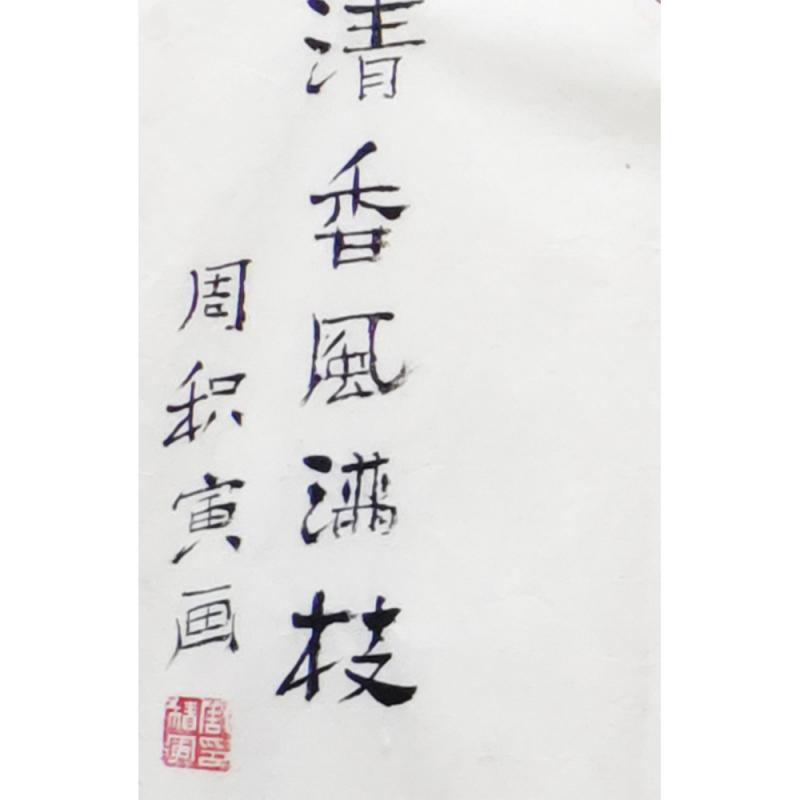 清香風滿枝
周积寅画
周积寅印